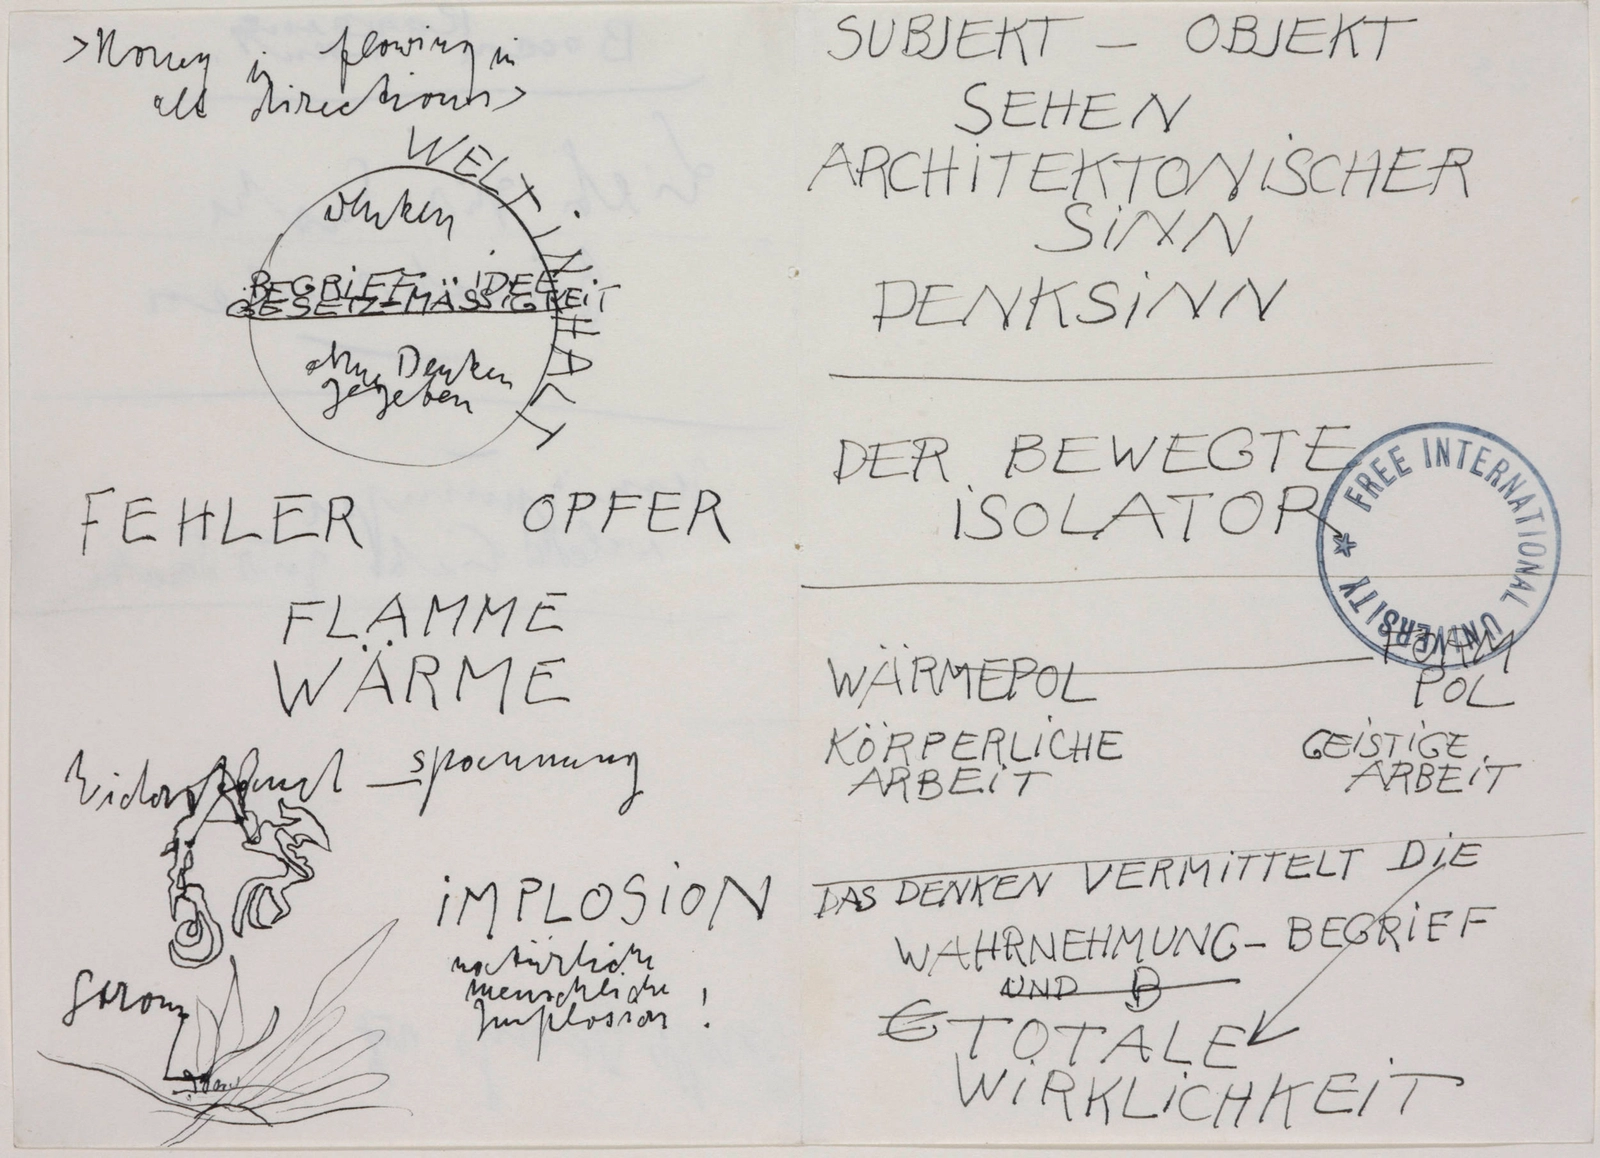 >Honey is flowing in
all directions>
WELTINHALT
denken
BEGRIFF IDEE
GESETZ-MÄSSIGKEIT
ohne Denken
gegeben
FEHLER OPFER
FLAMME
WÄRME
Widerstand _ spannung
IMPLOSION
natürliche
menschliche
Implosion !
Strom
SUBJEKT — OBJEKT
SEHEN
ARCHITEKTONISCHER
SINN
DENKSINN
DER BEWEGTE
ISOLATOR
FREE INTERNATIONAL UNIVERSITY
WÄRMEPOL
POL
KÖRPERLICHE
ARBEIT
GEISTIGE
ARBEIT
DAS DENKEN VERMITTELT DIE
WAHRNEHMUNG- BEGRIEF
UND B
TOTALE
WIRKLICHKEIT